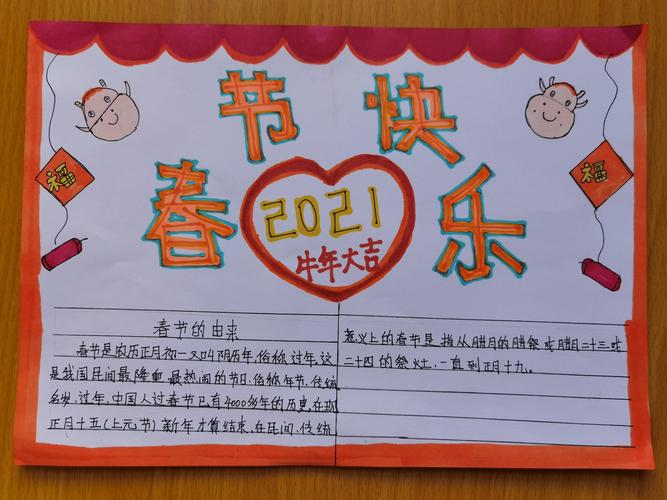 春节快乐
福
福
2021
牛年大吉
春节的由来
春节是农历正月初一又叫阴历年,俗称过年,这
是我国民间最隆重最热闹的节日.俗称年节,传统
名岁.过年,中国人过春节已有4000多年的历史,在现
正月十五(上元节)新年才算结束,在民间,传统
意义上的春节是指从腊月的腊祭或腊月二十三或
二十四的祭灶.一直到正月十九。